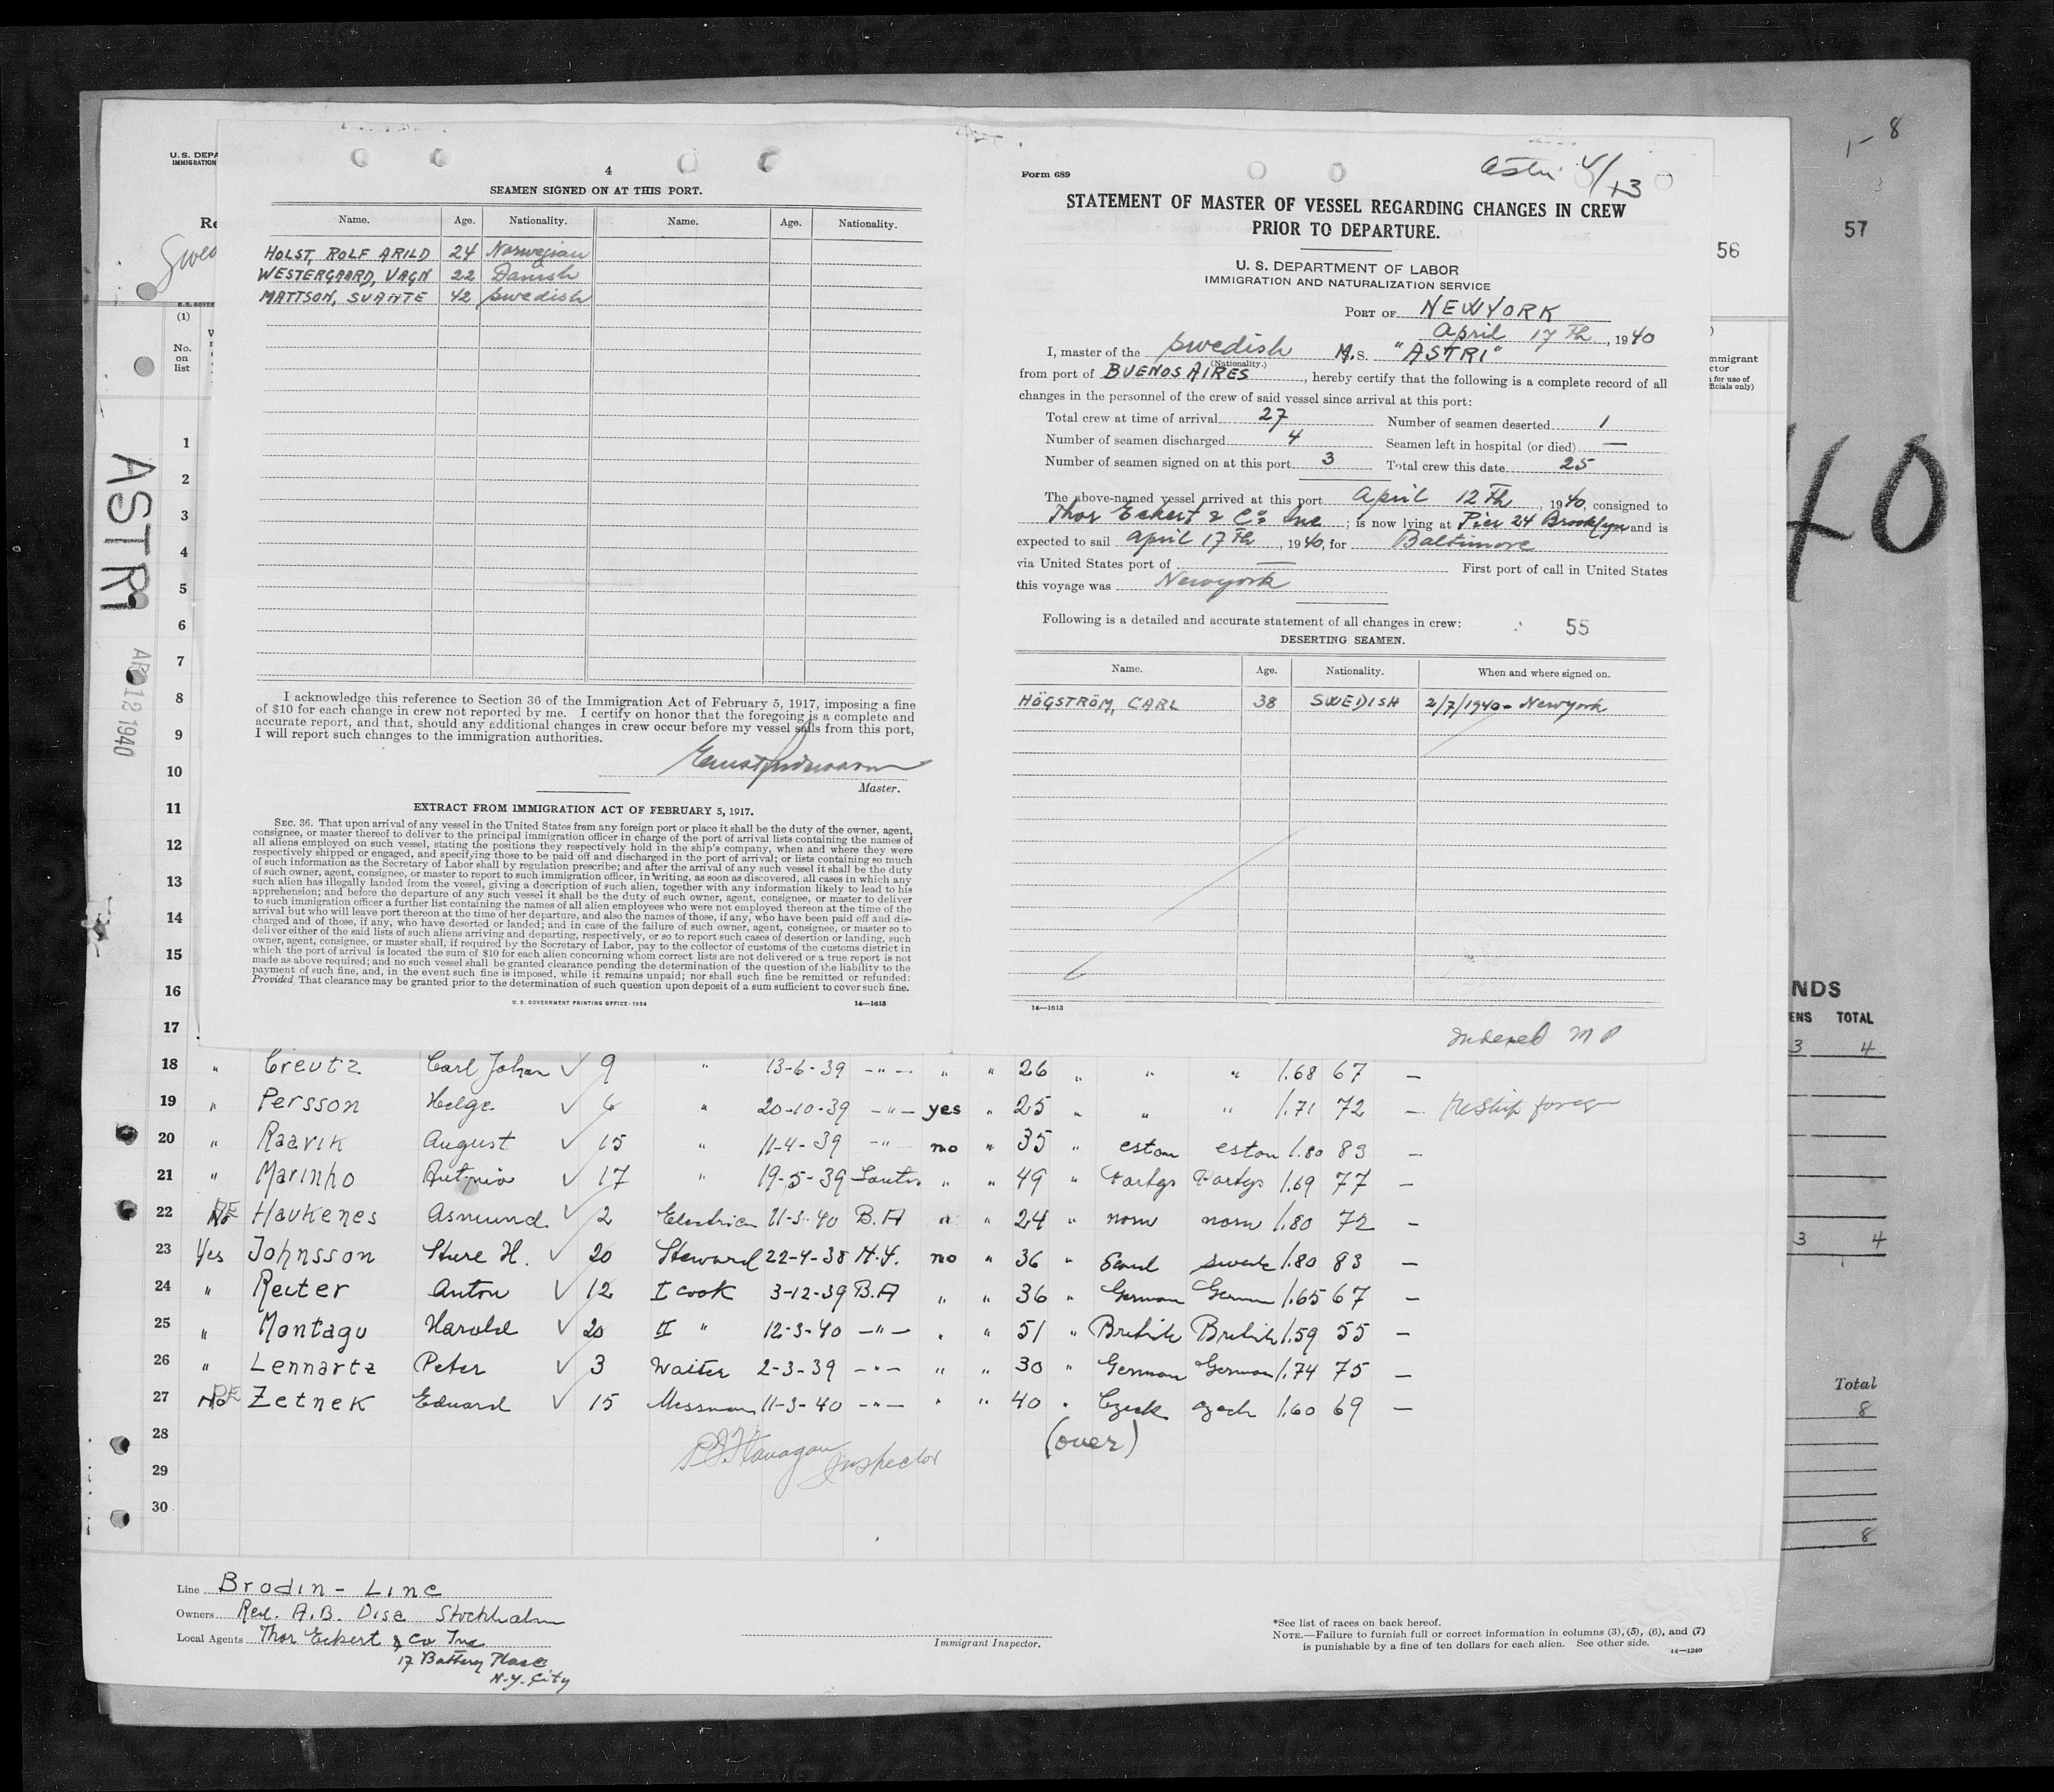 4
SEAMEN SIGNED ON AT THIS PORT.
Name. Age. Nationality. Name. Age. Nationality.
HOLST, ROLF ARILD 24 Norwegian
WESTERGAARD, VAGN 22 Danish
MATTSON, SVANTE 42 Swedish
I acknowledge this reference to Section 36 of the Immigration Act of February 5, 1917, imposing a fine
of $10 for each change in crew not reported by me. I certify on honor that the foregoing is a complete and
accurate report, and that, should any additional changes in crew occur before my vessel sails from this port,
I will report such changes to the immigration authorities.
Master.
EXTRACT FROM IMMIGRATION ACT OF FEBRUARY 5, 1917.
SEC. 36. That upon arrival of any vessel in the United States from any foreign port or place it shall be the duty of the owner, agent,
consignee, or master thereof to deliver to the principal immigration officer in charge of the port of arrival lists containing the names of
all aliens employed on such vessel, stating the positions they respectively hold in the ship's company, when and where they were
respectively shipped or engaged, and specifying those to be paid off and discharged in the port of arrival; or lists containing so much
of such information as the Secretary of Labor shall by regulation prescribe; and after the arrival of any such vessel it shall be the duty
of such owner, agent, consignee, or master to report to such immigration officer, in writing, as soon as discovered, all cases in which any
such alien has illegally landed from the vessel, giving a description of such alien, together with any information likely to lead to his
apprehension; and before the departure of any such vessel it shall be the duty of such owner, agent, consignee, or master to deliver
to such immigration officer a further list containing the names of all alien employees who were not employed thereon at the time of the
arrival but who will leave port thereon at the time of her departure, and also the names of those, if any, who have been paid off and dis-
charged and of those, if any, who have deserted or landed; and in case of the failure of such owner, agent, consignee, or master so to
deliver either of the said lists of such aliens arriving and departing, respectively, or so to report such cases of desertion or landing, such
owner, agent, consignee, or master shall, if required by the Secretary of Labor, pay to the collector of customs of the customs district in
which the port of arrival is located the sum of $10 for each alien concerning whom correct lists are not delivered or a true report is not
made as above required; and no such vessel shall be granted clearance pending the determination of the question of the liability to the
payment of such fine, and, in the event such fine is imposed, while it remains unpaid; nor shall such fine be remitted or refunded:
Provided, That clearance may be granted prior to the determination of such question upon deposit of a sum sufficient to cover such fine.
U. S. GOVERNMENT PRINTING OFFICE: 1934 14—1613
Form 689
Astri 4/13
STATEMENT OF MASTER OF VESSEL REGARDING CHANGES IN CREW
PRIOR TO DEPARTURE.
U. S. DEPARTMENT OF LABOR
IMMIGRATION AND NATURALIZATION SERVICE
PORT OF NEWYORK
April 17 Th, 1940
I, master of the Swedish M.S. "ASTRI"
(Nationality.)
from port of BUENOS AIRES, hereby certify that the following is a complete record of all
changes in the personnel of the crew of said vessel since arrival at this port:
Total crew at time of arrival 27 Number of seamen deserted 1
Number of seamen discharged 4 Seamen left in hospital (or died) —
Number of seamen signed on at this port 3 Total crew this date 25
The above-named vessel arrived at this port April 12 Th, 1940, consigned to
Thor Eckert & Co. Inc; is now lying at Pier 24 Brooklyn and is
expected to sail April 17 Th, 1940, for Baltimore
via United States port of — First port of call in United States
this voyage was Newyork
Following is a detailed and accurate statement of all changes in crew: 55
DESERTING SEAMEN.
Name. Age. Nationality. When and where signed on.
HÖGSTRÖM, CARL 38 SWEDISH 2/7/1940 - Newyork
14—1613
Indexed M P
U. S. DEPA
IMMIGRATION
Re
(1)
No.
on
list
1
2
3
4
5
6
7
8
9
10
11
12
13
14
15
16
17
ASTRI
APR 12 1940
18 " Creutz Carl Johan ✓ 9 " 13-6-39 -"- " " 26 " " " 1.68 67 —
19 " Persson Helge ✓ 6 " 20-10-39 -"- yes " 25 " " " 1.71 72 — Reship foreign
20 " Raavik August ✓ 15 " 11-4-39 -"- no " 35 " eston eston 1.80 83 —
21 " Marinho Antonio ✓ 17 " 19-5-39 Santos " " 49 " Portgs Portgs 1.69 77 —
22 No Haukenes Asmund ✓ 2 Electrician 11-3-40 B.A " " 24 " norw norw 1.80 72 —
23 Yes Johnsson Sture H. ✓ 20 Steward 22-4-38 N.Y. no " 36 " Scand swede 1.80 83 —
24 " Reiter Anton ✓ 12 I cook 3-12-39 B.A " " 36 " German German 1.65 67 —
25 " Montagu Harold ✓ 20 II " 12-3-40 -"- " " 51 " British British 1.59 55 —
26 " Lennartz Peter ✓ 3 Waiter 2-3-39 -"- " " 30 " German German 1.74 75 —
27 No Zetnek Eduard ✓ 15 Messman 11-3-40 -"- " " 40 " Czeck czech 1.60 69 —
28 (over)
29 Flanagan Inspector
30
Line Brodin - Line
Owners Red. A.B. Disa Stockholm
Local Agents Thor Eckert & Co Inc
17 Battery Place
N.Y. City
Immigrant Inspector.
*See list of races on back hereof.
NOTE.—Failure to furnish full or correct information in columns (3), (5), (6), and (7)
is punishable by a fine of ten dollars for each alien. See other side.
14—1240
56
mmigrant
ctor
for use of
ficials only)
8
57
40
NDS
ENS TOTAL
3 4
3 4
Total
8
8